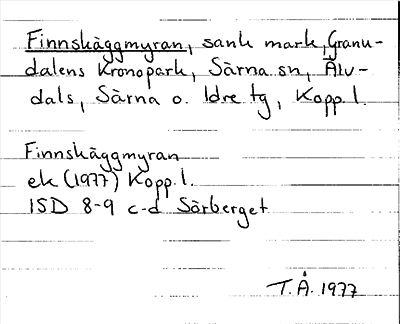 Finnskäggmyran, sank mark, Granu-
dalens Kronopark, Särna sn, Älv-
dals, Särna o. Idre tg, Kopp. l.
Finnskäggmyran
ek (1977) Kopp. l.
15D 8-9 c-d Sörberget
T. Å. 1977